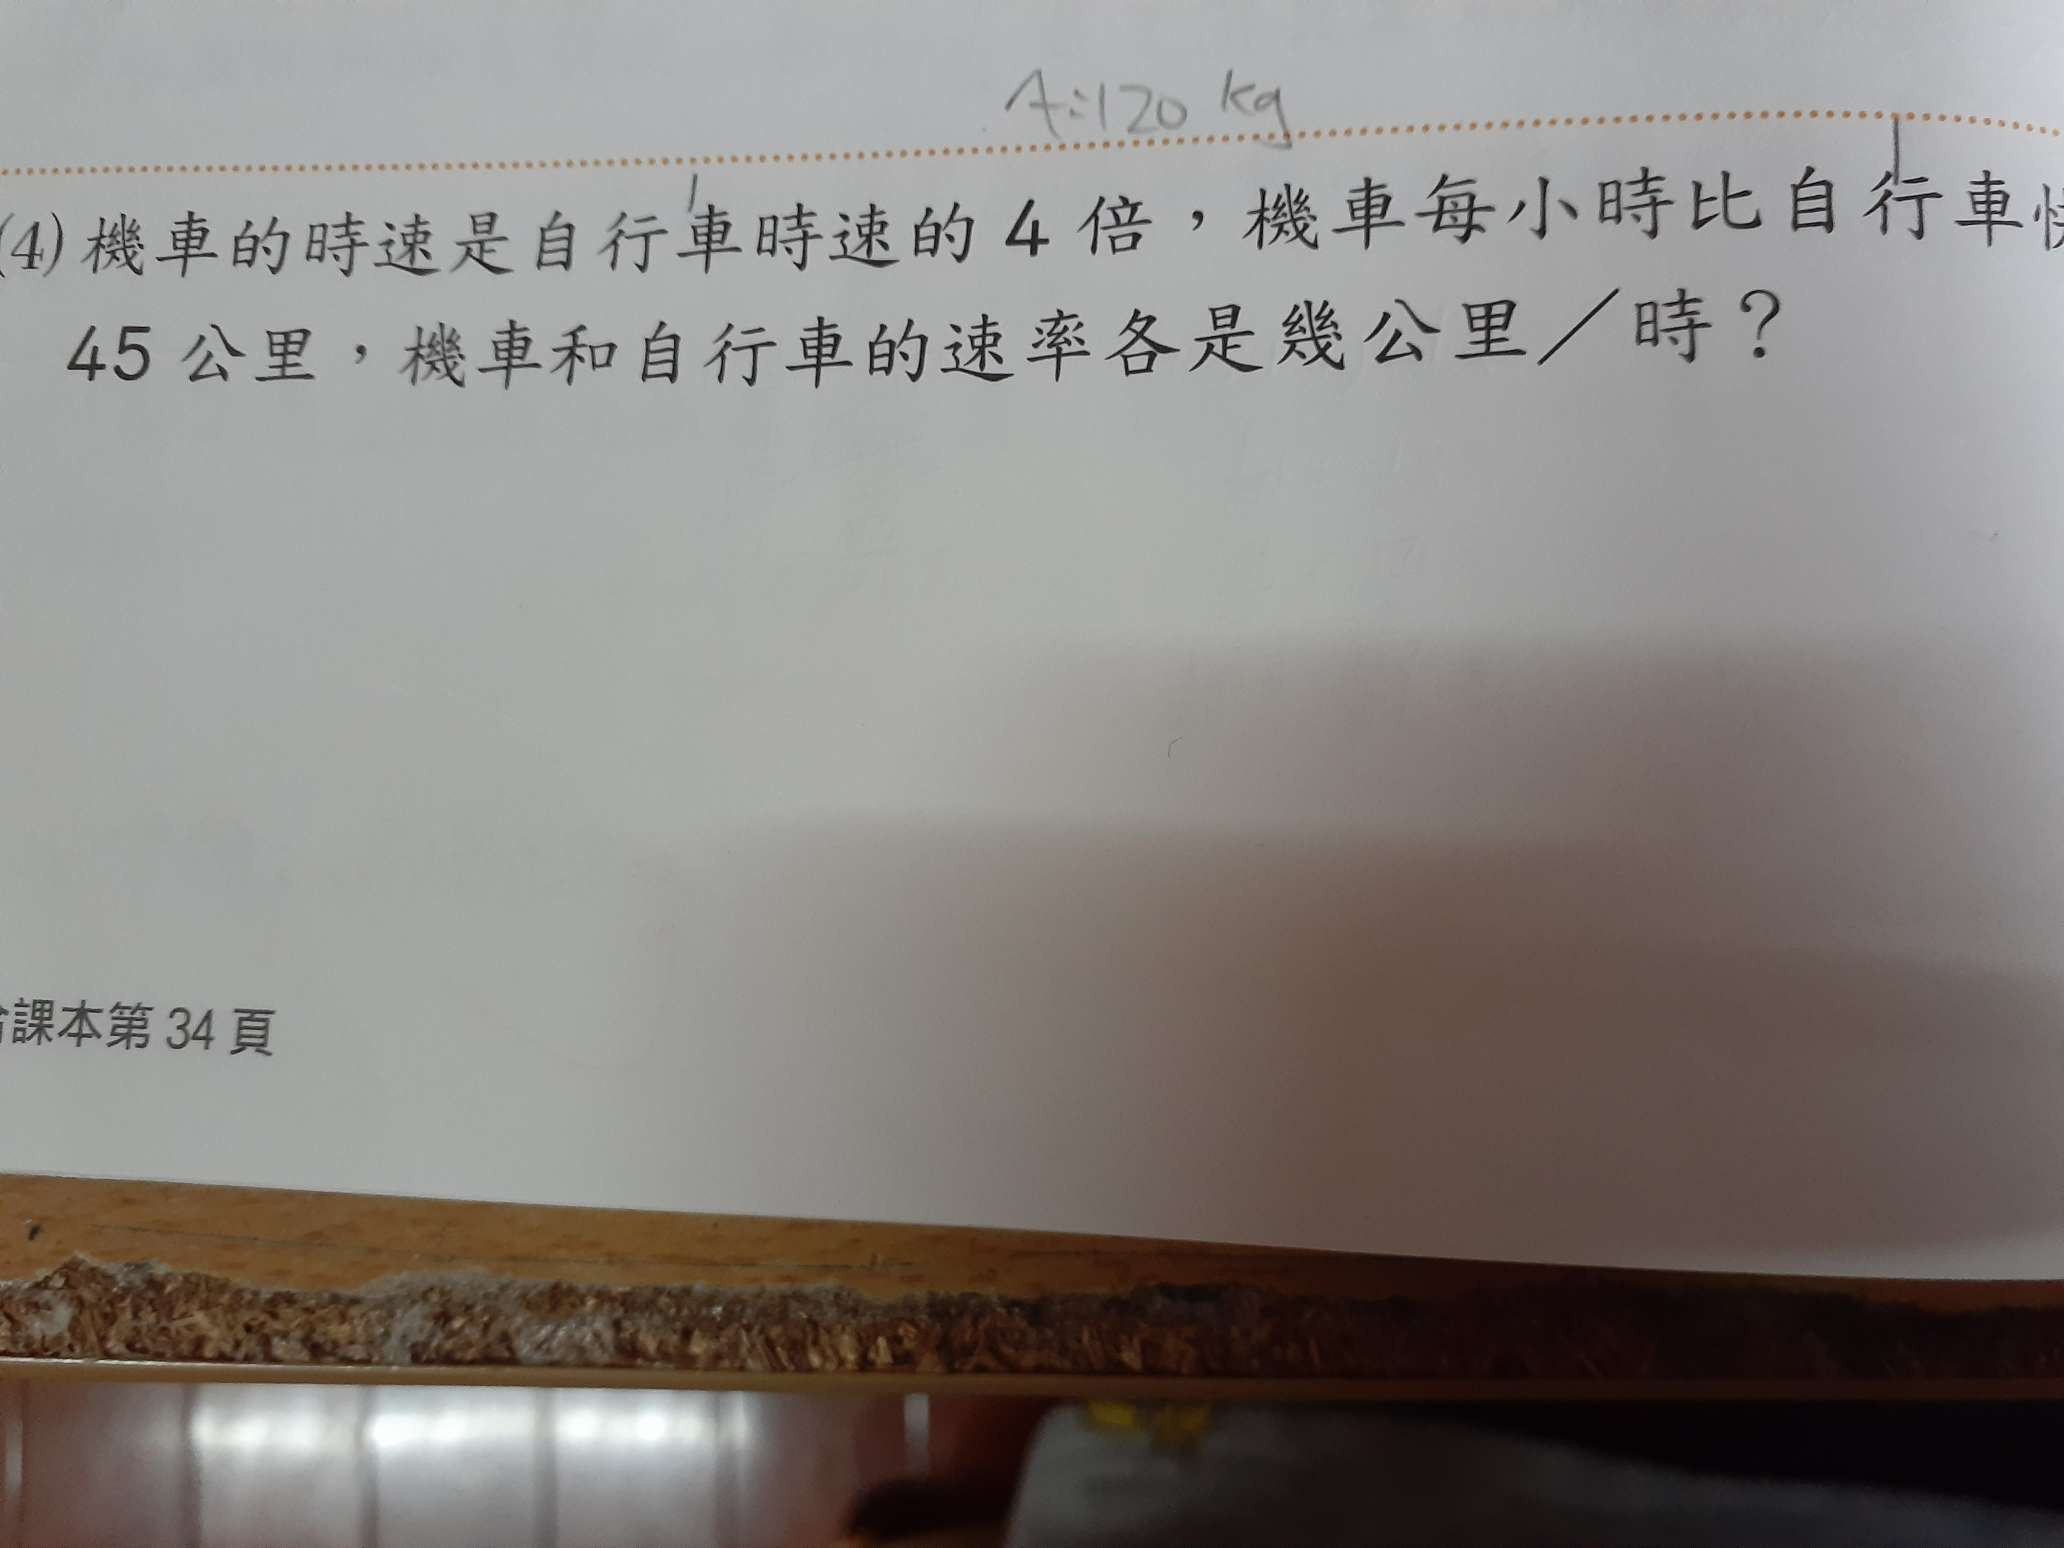 A:120 kg
(4) 機車的時速是自行車時速的 4 倍，機車每小時比自行車快
45 公里，機車和自行車的速率各是幾公里／時？
課本第 34 頁